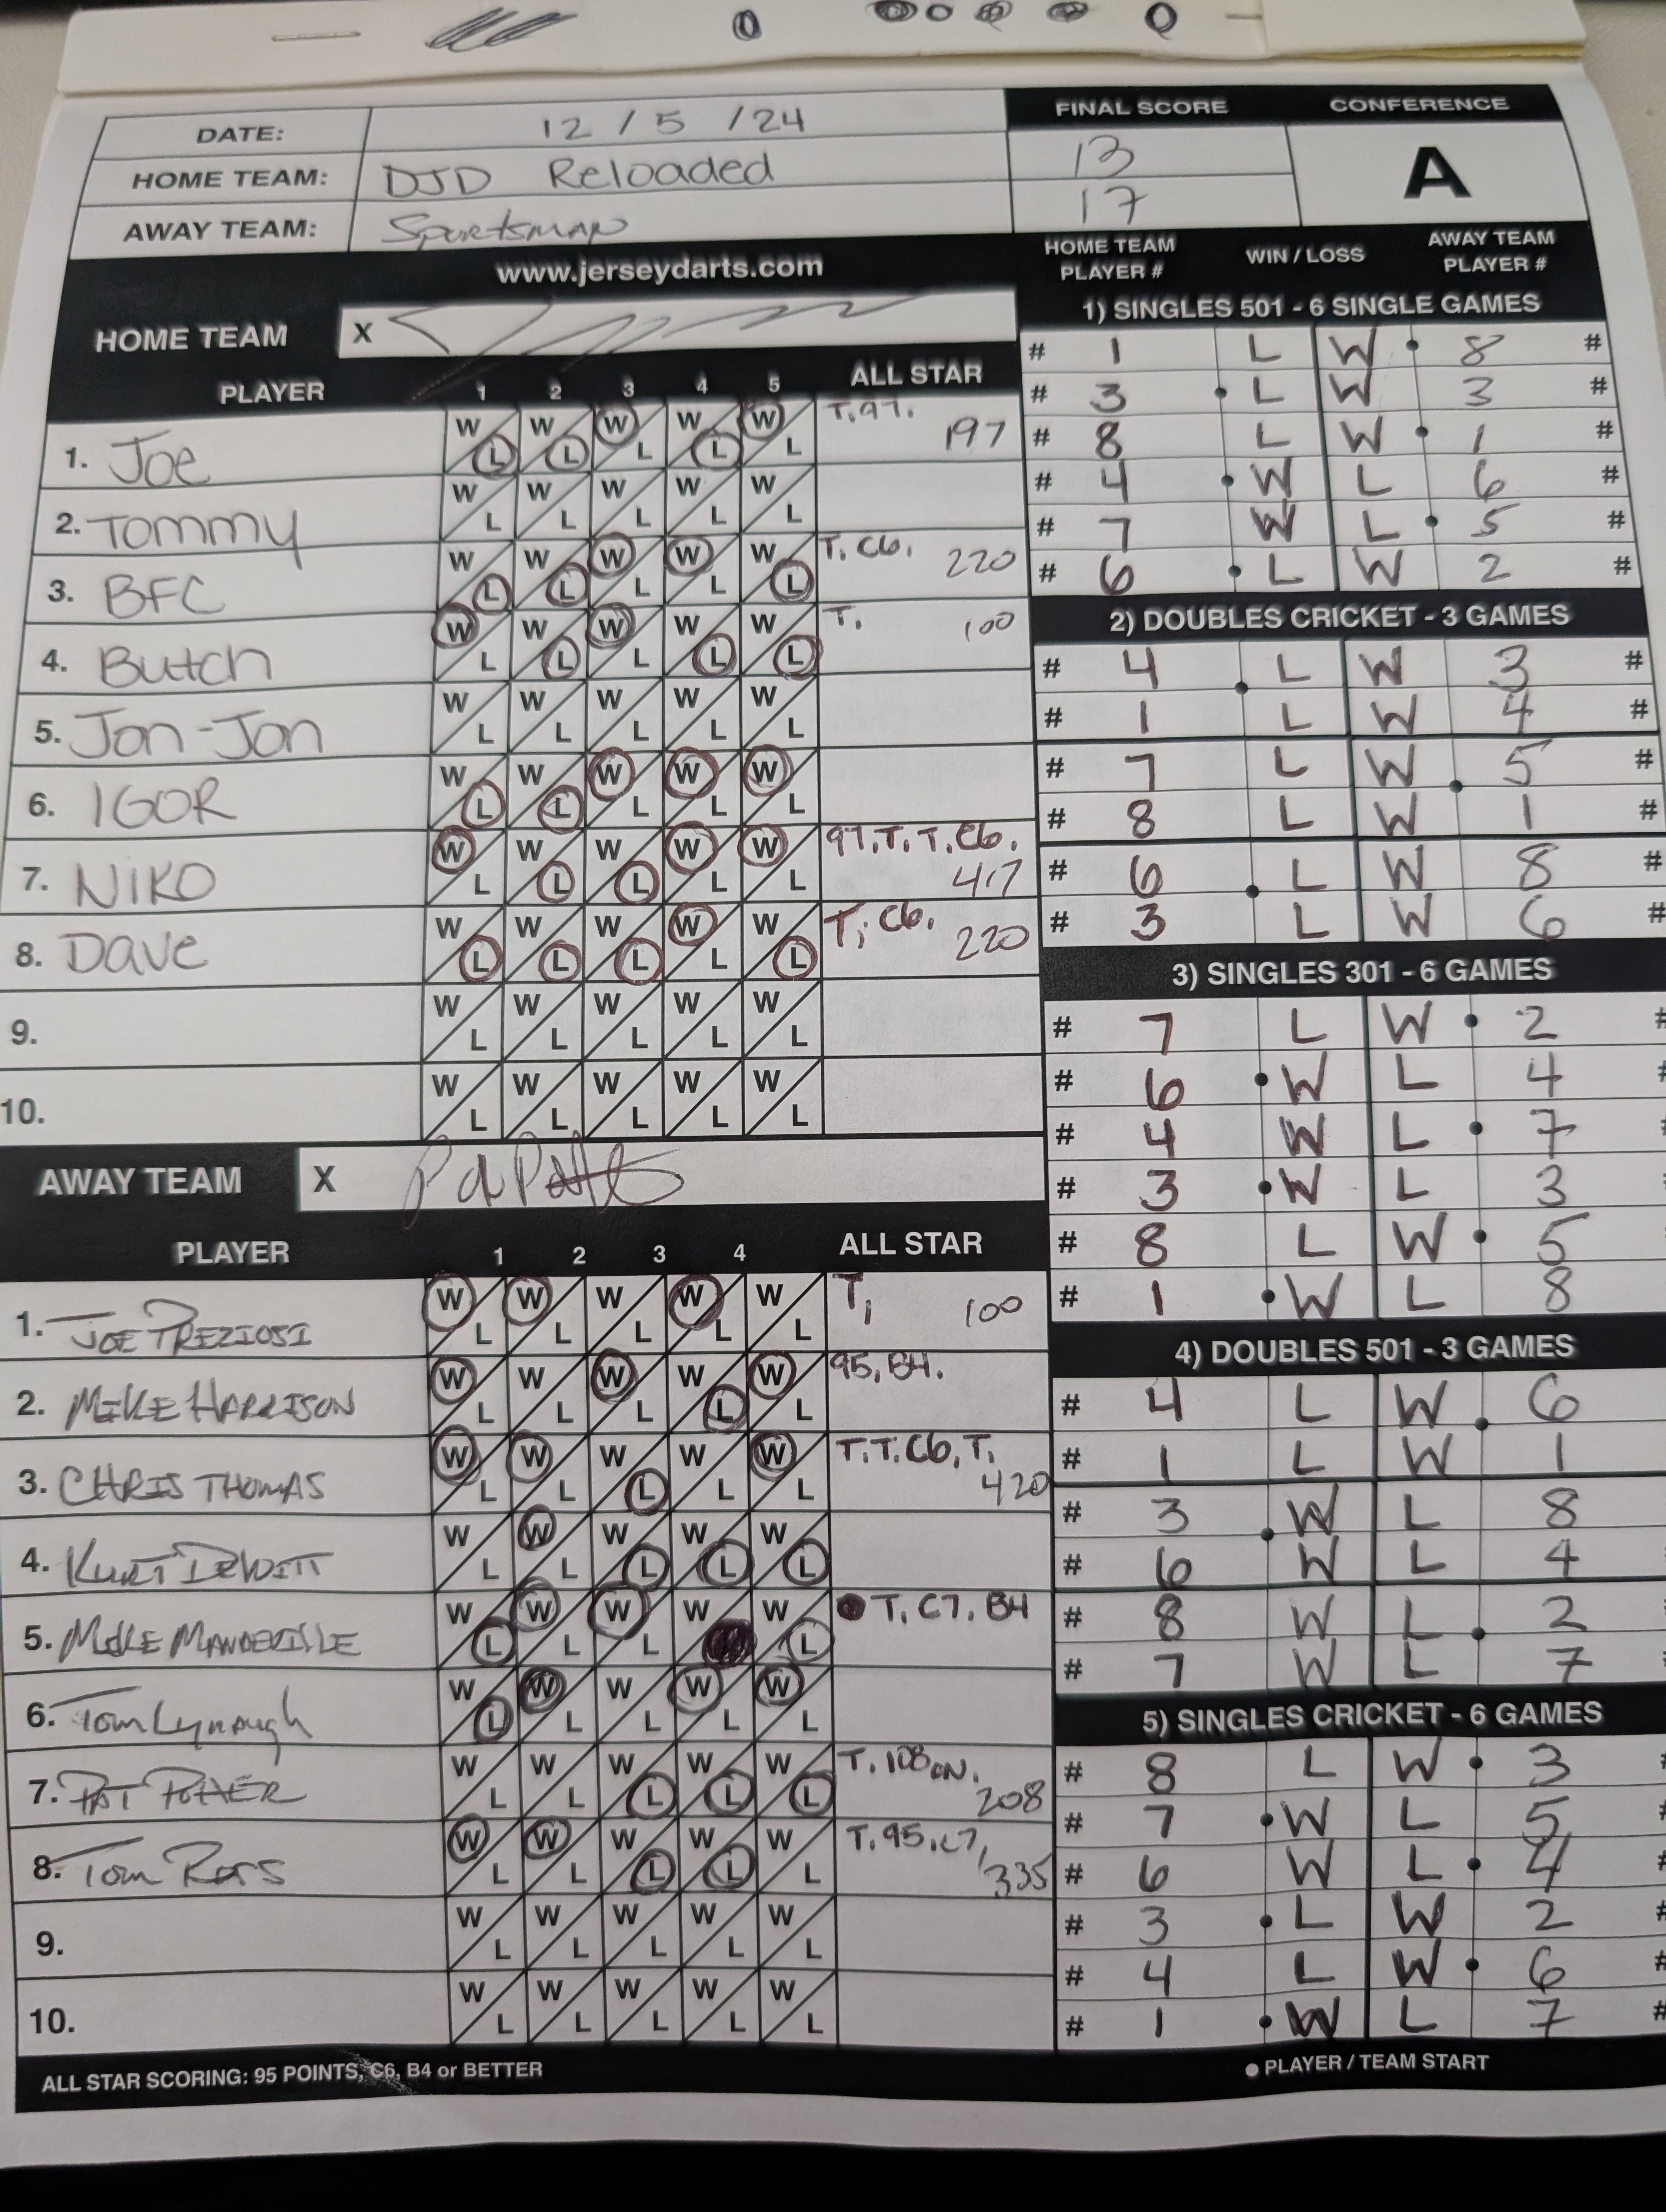 DATE: 12 / 5 / 24
HOME TEAM: DJD Reloaded
AWAY TEAM: Sportsman
FINAL SCORE CONFERENCE
13
17
A
www.jerseydarts.com
HOME TEAM X
PLAYER 1 2 3 4 5 ALL STAR
1. Joe W L W L W L W L W L T. 97. 197
2. Tommy W L W L W L W L W L
3. BFC W L W L W L W L W L T. C6. 220
4. Butch W L W L W L W L W L T. 100
5. Jon-Jon W L W L W L W L W L
6. IGOR W L W L W L W L W L
7. NIKO W L W L W L W L W L 97. T. T. C6. 417
8. Dave W L W L W L W L W L T; C6. 220
9. W L W L W L W L W L
10. W L W L W L W L W L
AWAY TEAM X
PLAYER 1 2 3 4 ALL STAR
1. JOE PREZIOSI W L W L W L W L W L T, 100
2. MIKE HARRISON W L W L W L W L W L 95, B4.
3. CHRIS THOMAS W L W L W L W L W L T. T. C6, T. 420
4. KURT DEWITT W L W L W L W L W L
5. MIKE MANDEVILLE W L W L W L W W L T. C7. B4
6. Tom Lynaugh W L W L W L W L W L
7. PAT POTTER W L W L W L W L W L T. 108 ON. 208
8. Tom Ross W L W L W L W L W L T. 95. C7, 335
9. W L W L W L W L W L
10. W L W L W L W L W L
ALL STAR SCORING: 95 POINTS, C6, B4 or BETTER
HOME TEAM PLAYER # WIN / LOSS AWAY TEAM PLAYER #
1) SINGLES 501 - 6 SINGLE GAMES
# 1 L W 8 #
# 3 L W 3 #
# 8 L W 1 #
# 4 W L 6 #
# 7 W L 5 #
# 6 L W 2 #
2) DOUBLES CRICKET - 3 GAMES
# 4 L W 3 #
# 1 L W 4 #
# 7 L W 5 #
# 8 L W 1 #
# 6 L W 8 #
# 3 L W 6 #
3) SINGLES 301 - 6 GAMES
# 7 L W 2 #
# 6 W L 4 #
# 4 W L 7 #
# 3 W L 3 #
# 8 L W 5 #
# 1 W L 8 #
4) DOUBLES 501 - 3 GAMES
# 4 L W 6 #
# 1 L W 1 #
# 3 W L 8 #
# 6 W L 4 #
# 8 W L 2 #
# 7 W L 7 #
5) SINGLES CRICKET - 6 GAMES
# 8 L W 3 #
# 7 W L 5 #
# 6 W L 4 #
# 3 L W 2 #
# 4 L W 6 #
# 1 W L 7 #
● PLAYER / TEAM START